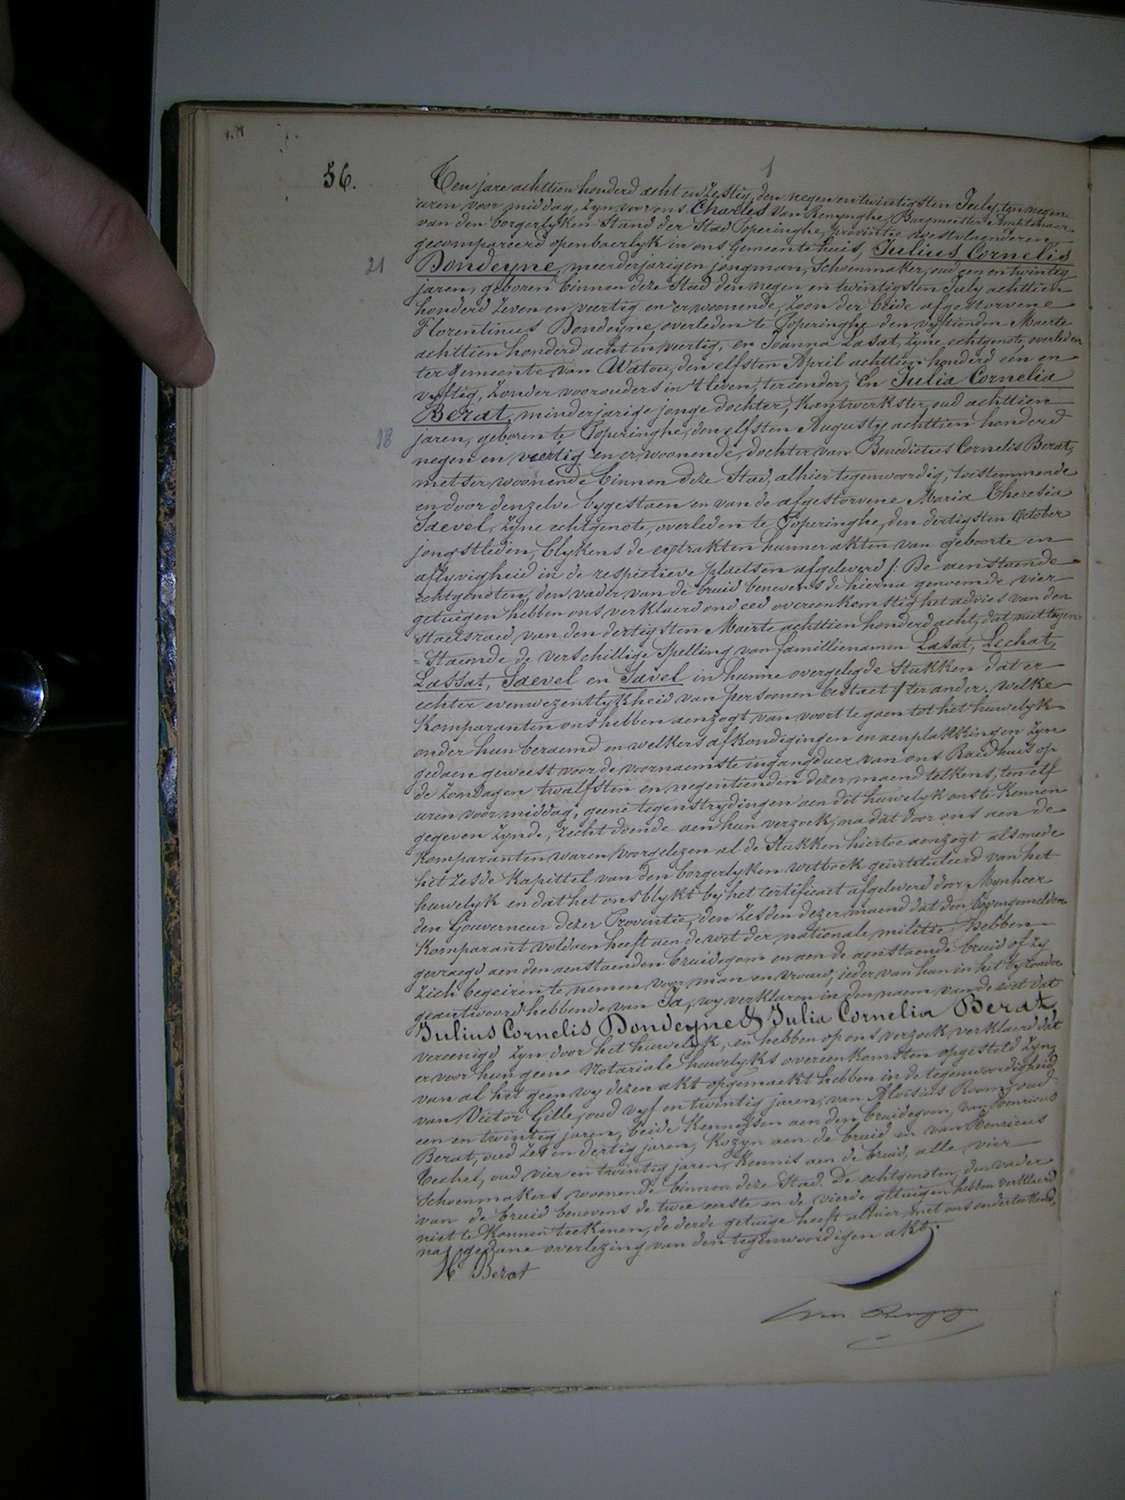 56.
Ten jare achttien honderd acht en zestig, den negen en twintigsten July, ten negen
uren voor middag, zyn voor ons Charles Van Renynghe, Burgmeester Ambtenaer
van den borgerlyken Stand der Stad Poperinghe, provintie Westvlaenderen
gecompareerd openbaerlyk in ons Gemeentehuis, Julius Cornelis
21
Dondeyne, meerderjarigen jongman, Schoenmaker, oud een en twintig
jaren, geboren binnen deze Stad den negen en twintigsten July achttien
honderd zeven en veertig en er woonende, zoon der beide afgestorvene
Florentinus Dondeyne, overleden te Poperinghe den vyftienden Maerte
achttien honderd acht en veertig, en Joanna Lasat, zyne echtgenote, overleden
ter Gemeente van Watou, den elfsten April achttien honderd een en
vyftig, zonder voorouders in 't leven, ter eender, En Julia Cornelia
Berat, minderjarige jonge dochter, Kantwerkster, oud achttien
18
jaren, geboren te Poperinghe, den elfsten Augusty achttien honderd
negen en veertig en er woonende, dochter van Benedictus Cornelis Berat,
metser, woonende binnen deze Stad, alhier tegenwoordig, toestemmende
en door denzelve bygestaen en van de afgestorvene Maria Theresia
Saevel, zyne echtgenote, overleden te Poperinghe, den dertigsten October
jongstleden, blykens de extrakten hunner akten van geboorte en
aflyvigheid in de respectieve plaetsen afgeleverd /. De aenstaende
echtgenoten, den vader van de bruid benevens de hierna genoemde vier
getuigen hebben ons verklaerd ond eed overeenkomstig het advies van den
Staetsraed, van den dertigsten Maerte achttien honderd acht, dat niet tegen
=staende de verschillige spelling van familienamen Lasat, Lechat,
Lassat, Saevel en Savel in hunne overgelegde Stukken dat er
echter evenwezentlykheid van persoonen bestaet / ter ander. Welke
Komparanten ons hebben aenzogt van voort te gaen tot het huwelyk
onder hun beraemd en welkers afkondigingen en aenplakkingen zyn
gedaen geweest voor de voornaemste ingangdeur van ons Raedhuis op
de Zondagen twalfsten en negentienden dezer maend telkens, ten elf
uren voor middag, geene tegenstrydingen aen dit huwelyk ons te kennen
gegeven zynde, recht doende aen hun verzoek, na dat door ons aen de
Komparanten waren voorgelezen al de Stukken hiertoe aenzogt alsmede
het zesde Kapittel van den borgerlyken wetboek geïntituleerd van het
huwelyk en dat het ons blykt by het certificaet afgeleverd door Mynheer
den Gouverneur dezer Provintie, den zesden dezer maend dat den bovengemelden
Komparant voldaen heeft aen de wet der nationale militie. Hebben
gevraegd aen den aenstaenden bruidegom en aen de aenstaende bruid of zy
zich begeiren te nemen voor man en vrouw, ieder van hun in het byzonder
geantwoord hebbende van Ja, wy verklaren in den naem van de wet dat
Julius Cornelis Dondeyne & Julia Cornelia Berat,
vereenigd zyn door het huwelyk, en hebben op ons verzoek verklaerd dat
er voor hun geene Notariale huwelyks overeenkomsten opgesteld zyn,
van al het geen wy dezen akt opgemaekt hebben in de tegenwoordigheid
van Victor Gille, oud vyf en twintig jaren, van Aloisius Room, oud
een en twintig jaren, beide Kennissen aen den bruidegom, van Henricus
Berat, oud zes en dertig jaren, Kozyn aen de bruid en van Henricus
Techel, oud vier en twintig jaren, Kennis aen de bruid, alle vier
Schoenmakers woonende binnen deze Stad. De echtgenoten, den vader
van de bruid benevens de twee eerste en de vierde getuigen hebben verklaerd
niet te Konnen teekenen, de derde getuige heeft alhier met ons onderteekend,
na gedane overlezing van den tegenwoordigen akt.
H. Berat
Van Renynghe